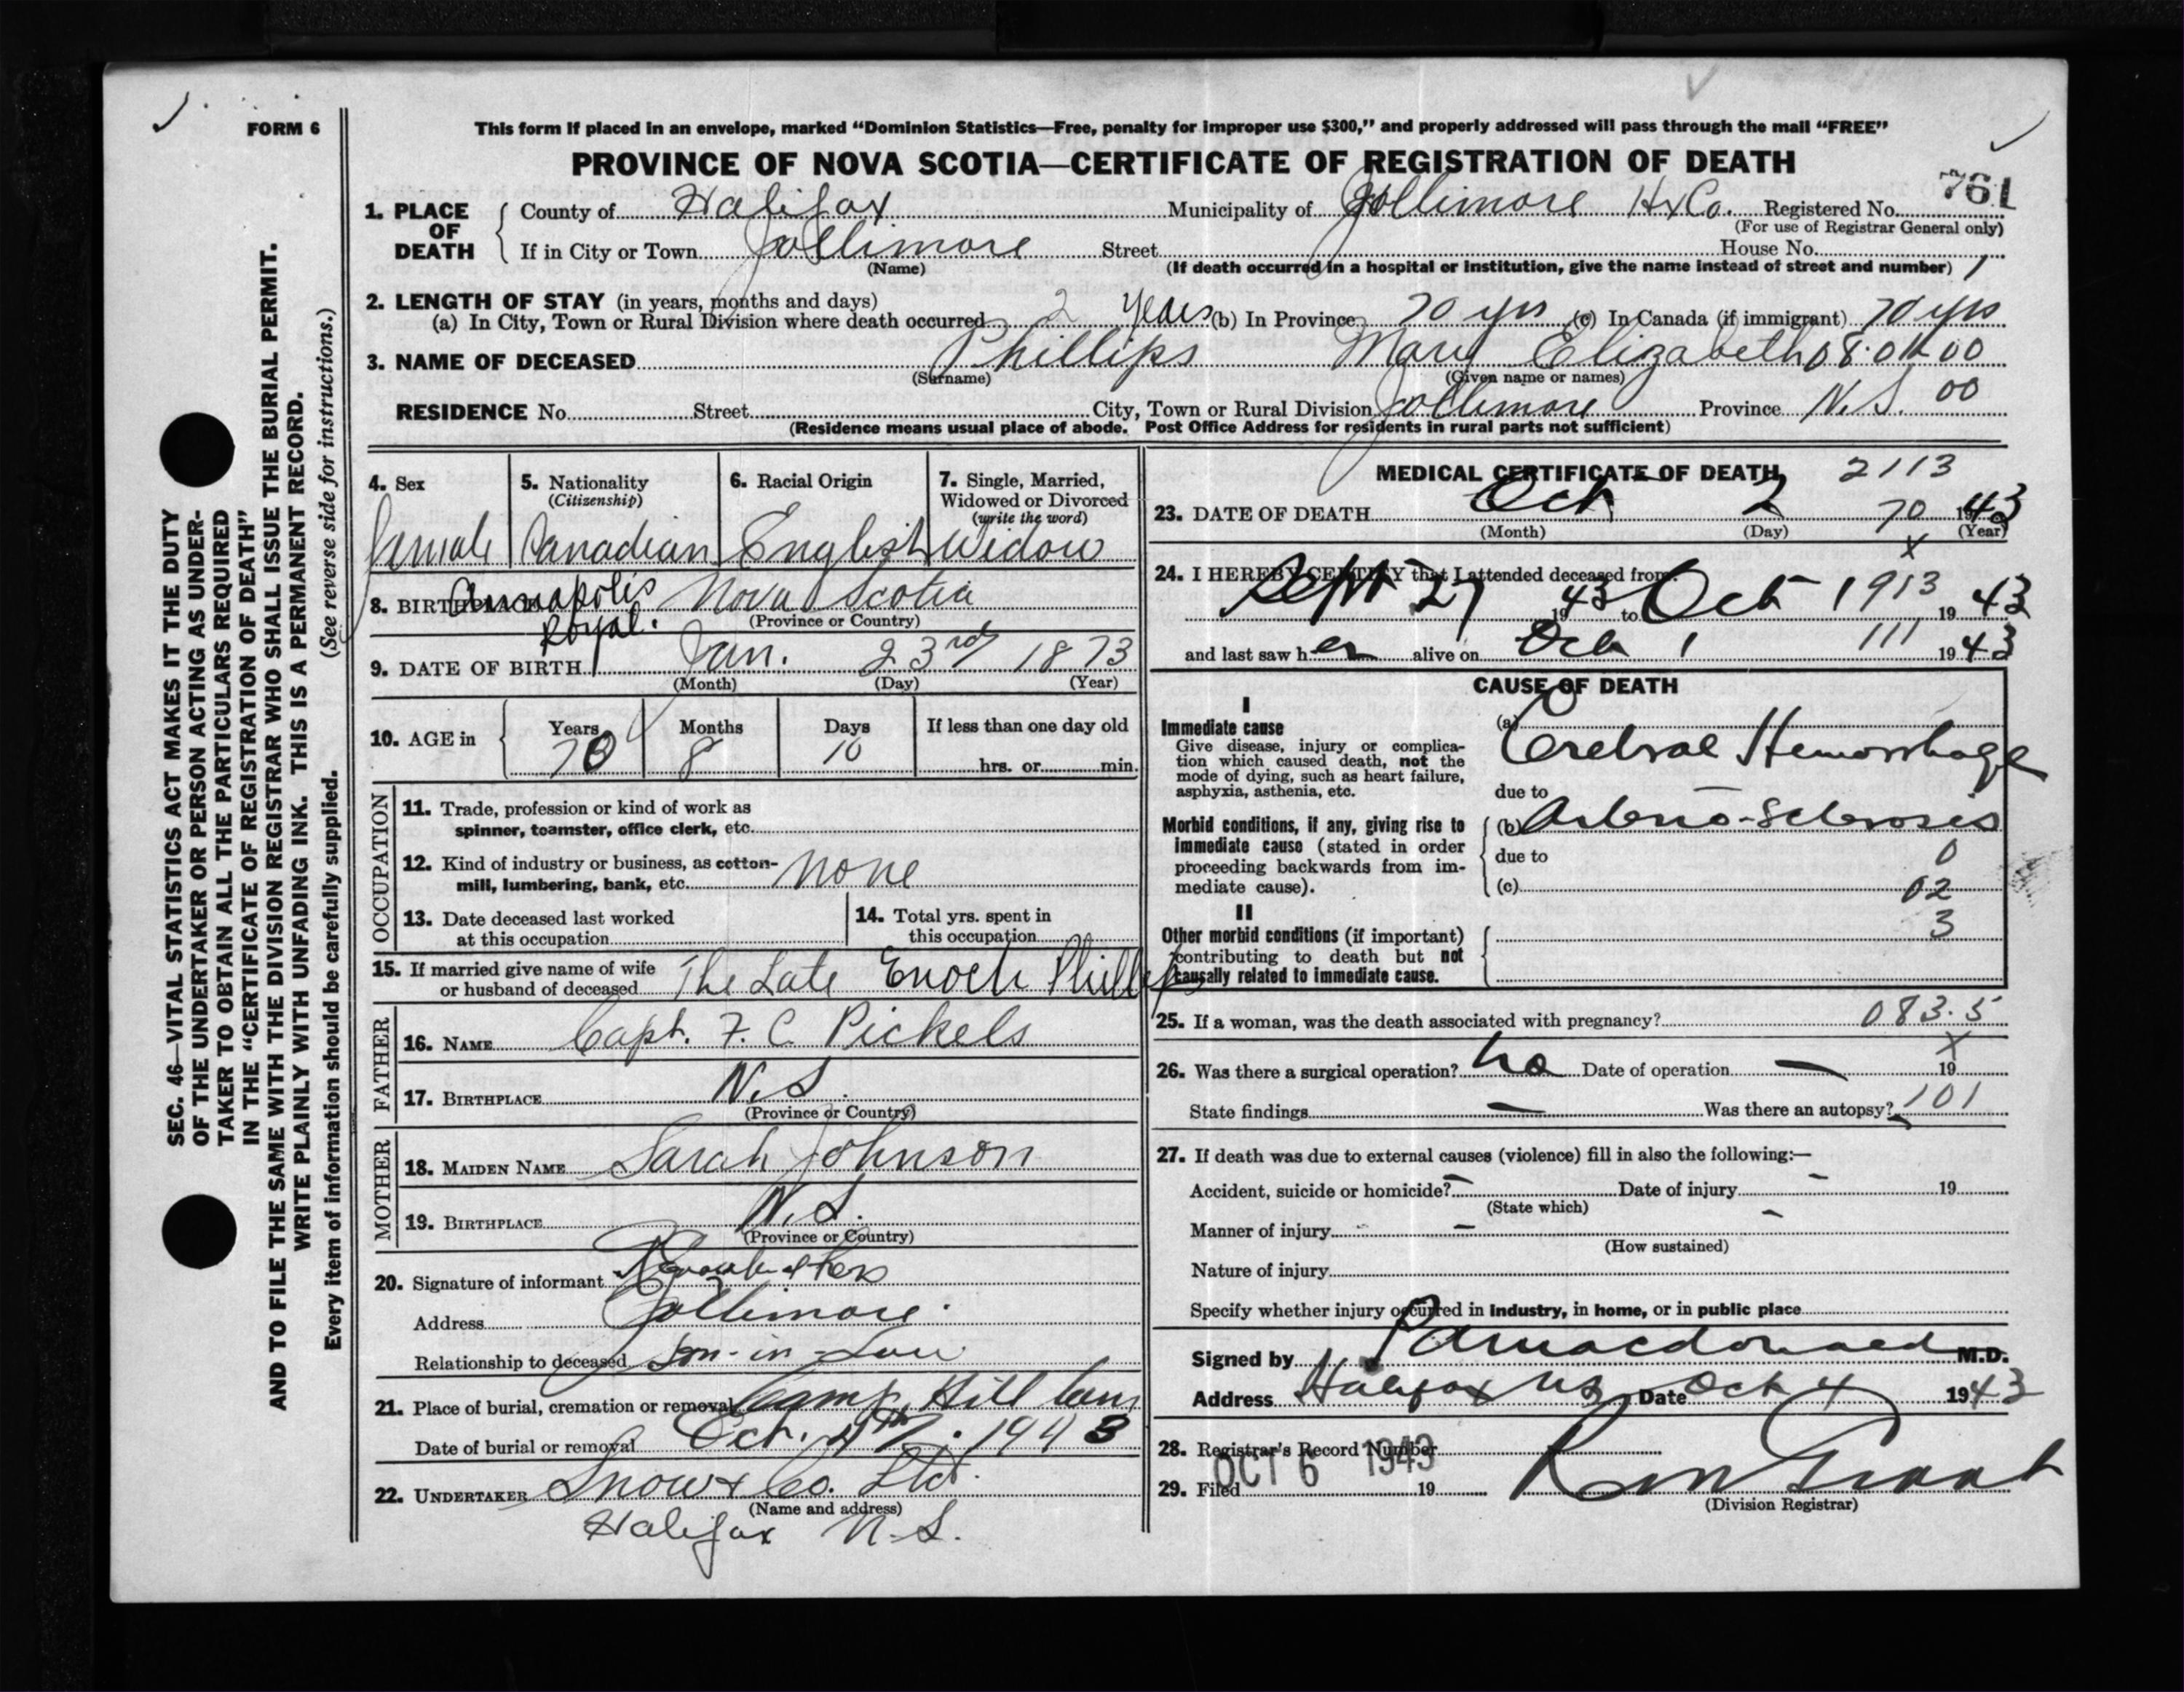 FORM 6
This form if placed in an envelope, marked “Dominion Statistics—Free, penalty for improper use $300,” and properly addressed will pass through the mail “FREE”
PROVINCE OF NOVA SCOTIA—CERTIFICATE OF REGISTRATION OF DEATH
761
1. PLACE OF DEATH
County of Halifax Municipality of Jollimore Hx Co. Registered No.
(For use of Registrar General only)
If in City or Town Jollimore Street House No.
(Name) (If death occurred in a hospital or institution, give the name instead of street and number) 1
2. LENGTH OF STAY (in years, months and days)
(a) In City, Town or Rural Division where death occurred 2 years (b) In Province 70 yrs (c) In Canada (if immigrant) 70 yrs
3. NAME OF DECEASED Phillips Mary Elizabeth
(Surname) (Given name or names)
RESIDENCE No. Street City, Town or Rural Division Jollimore Province N.S. 00
(Residence means usual place of abode. Post Office Address for residents in rural parts not sufficient)
4. Sex
female
5. Nationality
(Citizenship)
Canadian
6. Racial Origin
English
7. Single, Married,
Widowed or Divorced
(write the word)
Widow
8. BIRTHPLACE Annapolis Royal. Nova Scotia
(Province or Country)
9. DATE OF BIRTH Jan. 23rd 1873
(Month) (Day) (Year)
10. AGE in
Years Months Days If less than one day old
70 8 10 hrs. or min.
OCCUPATION
11. Trade, profession or kind of work as
spinner, teamster, office clerk, etc.
12. Kind of industry or business, as cotton-
mill, lumbering, bank, etc. None
13. Date deceased last worked
at this occupation
14. Total yrs. spent in
this occupation
15. If married give name of wife
or husband of deceased The Late Enoch Phillips
FATHER
16. NAME Capt. F. C. Pickels
17. BIRTHPLACE N.S.
(Province or Country)
MOTHER
18. MAIDEN NAME Sarah Johnson
19. BIRTHPLACE N.S.
(Province or Country)
20. Signature of informant
Address Jollimore.
Relationship to deceased Son-in-Law
21. Place of burial, cremation or removal Camp Hill Cem
Date of burial or removal Oct. 4th. 1943
22. UNDERTAKER Snow & Co. Ltd.
(Name and address)
Halifax N.S.
MEDICAL CERTIFICATE OF DEATH 2113
23. DATE OF DEATH Oct 2 70 1943
(Month) (Day) (Year)
X
24. I HEREBY CERTIFY that I attended deceased from
Sept 27 1943 to Oct 1 913 1943
and last saw her alive on Oct 1 111 1943
CAUSE OF DEATH
I
Immediate cause
Give disease, injury or complica-
tion which caused death, not the
mode of dying, such as heart failure,
asphyxia, asthenia, etc.
(a) Cerebral Hemorrhage
due to
Morbid conditions, if any, giving rise to
immediate cause (stated in order
proceeding backwards from im-
mediate cause).
(b) Arterio-Sclerosis
due to 0
(c) 02
II
3
Other morbid conditions (if important)
contributing to death but not
causally related to immediate cause.
25. If a woman, was the death associated with pregnancy? 083.5
X
26. Was there a surgical operation? No Date of operation — 19
State findings — Was there an autopsy? 101
27. If death was due to external causes (violence) fill in also the following:—
Accident, suicide or homicide? – Date of injury – 19
(State which)
Manner of injury – –
(How sustained)
Nature of injury
Specify whether injury occurred in industry, in home, or in public place
Signed by Macdonald M.D.
Address Halifax NS Date Oct 4 1943
28. Registrar's Record Number
OCT 6 1943
29. Filed 19
(Division Registrar)
SEC. 46—VITAL STATISTICS ACT MAKES IT THE DUTY
OF THE UNDERTAKER OR PERSON ACTING AS UNDER-
TAKER TO OBTAIN ALL THE PARTICULARS REQUIRED
IN THE “CERTIFICATE OF REGISTRATION OF DEATH”
AND TO FILE THE SAME WITH THE DIVISION REGISTRAR WHO SHALL ISSUE THE BURIAL PERMIT.
WRITE PLAINLY WITH UNFADING INK. THIS IS A PERMANENT RECORD.
Every item of information should be carefully supplied. (See reverse side for instructions.)